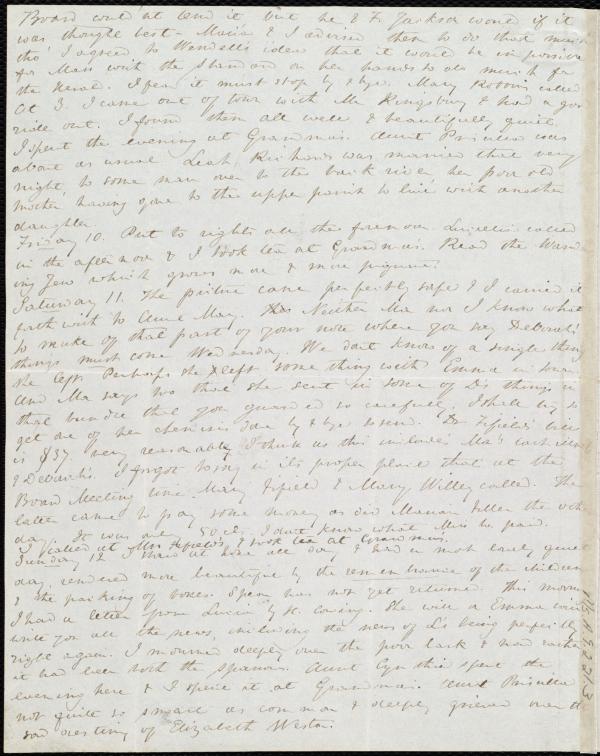 Board could'nt lend it but he & F. Jackson would if it
was thought best - Maria & I advised them to do that much
tho' I agreed to Wendell's idea that it would be impossible
for Mass with the Standard on her hands to do much for
the Herald. I fear it must stop by & bye. Mary Robbins called
at 3. I came out of town with Mr Kingsbury & had a good
ride out. I found them all well & beautifully quiet.
I spent the evening at Grandma's. Aunt Priscilla was
about as usual. Leah Richards was married that very
night, to some man over to the back river, her poor old
mother having gone to the upper parish to live with another
daughter.
Friday 10. Put to rights all the forenoon. Lucretia called
in the afternoon & I took tea at Grandma's. Read the Wander
ing Jew which grows more & more
Saturday 11. The picture came perfectly safe & I carried it
forthwith to Aunt Mary. Neither Ma nor I know what
to make of that part of your note where you say Deborah's
things must come Wednesday. We dont know of a single thing
she left. Perhaps she left some thing with Emma in
and Ma says too that she sent in some of D's things in
that bundle that you guarded so carefully. I shall try to
get one of her chemises done by & bye to send. Dr Fifield's bill
is $37 very reasonable I think as this includes Ma's sickness
& Deborah's. I forgot to say in its proper place that at the
Board Meeting time Mary Fifield & Mary Willey called. The
latter came to pay some money as did Marian Fuller the other
day. It was only 50 cts. I dont know what Miss W. paid.
I called at Mrs Fifield's, & took tea at Grandma's.
Sunday 12. Staid at home all day & had a most lovely quiet
day, rendered more beautiful by the remembrance of the children
& the packing of boxes. Spear has not yet returned. This morning
I had a letter from Lucia by H. Cowing. She will or Emma will
write you all the news, including the news of L's being perfectly
right again. I mourned deeply over the poor lark & had rather
it had been both the sparrows. Aunt Cynthia spent the
evening here & I spent it at Grandma's. Aunt Priscilla
not quite so smart as common & deeply grieved over the
sad destiny of Elizabeth Weston.